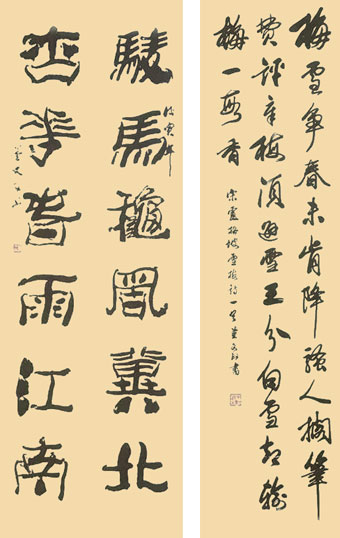 梅雪爭春未肯降騷人擱筆
費評章梅須遜雪三分白雪却輸
梅一段香
宋盧梅坡雪梅詩一首
駿馬穐風冀北
杏花春雨江南